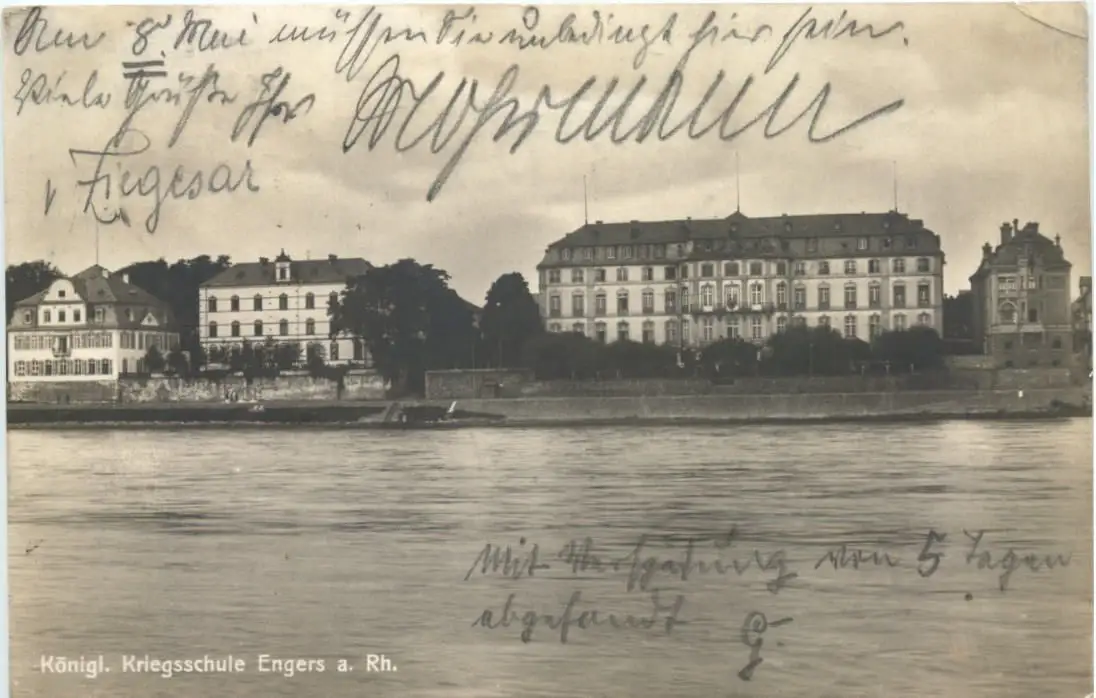 Am 8. Mai müssen Sie unbedingt hier sein.
Viele Grüße Ihr
v Ziegesar
Mit Verspätung von 5 Tagen
abgesandt G.
Königl. Kriegsschule Engers a. Rh.